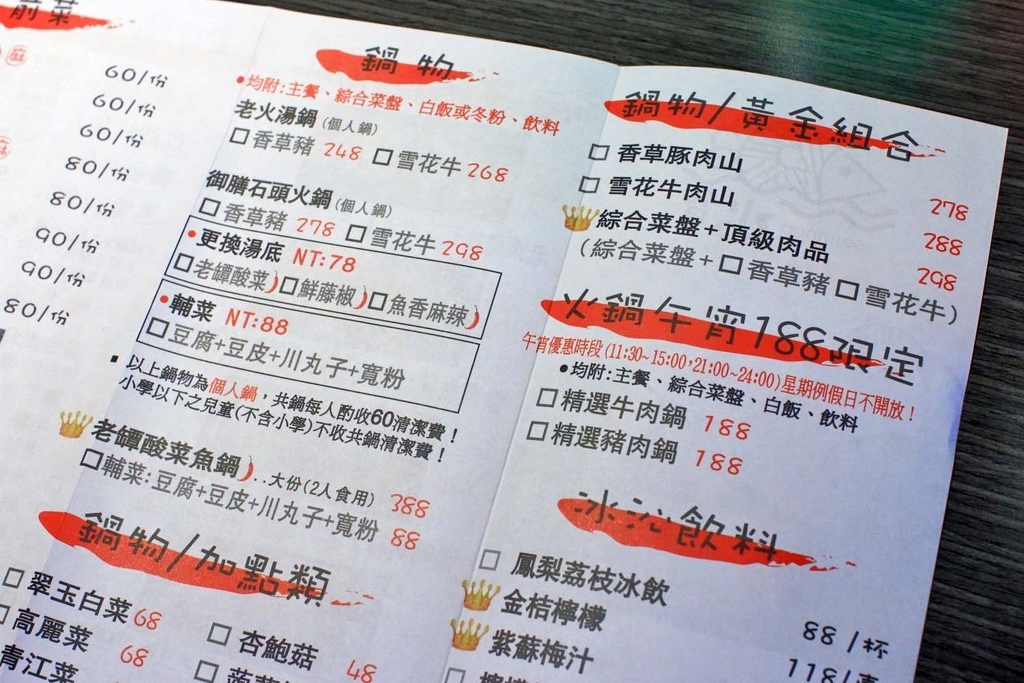 前菜
麻
60/份
60/份
60/份
80/份
80/份
90/份
90/份
80/份
鍋物
•均附:主餐、綜合菜盤、白飯或冬粉、飲料
老火湯鍋(個人鍋)
□香草豬 248 □雪花牛 268
御膳石頭火鍋(個人鍋)
□香草豬 278 □雪花牛 298
•更換湯底 NT:78
□老罈酸菜 □鮮藤椒 □魚香麻辣
•輔菜 NT:88
□豆腐+豆皮+川丸子+寬粉
▪以上鍋物為個人鍋,共鍋每人酌收60清潔費!
小學以下之兒童(不含小學)不收共鍋清潔費!
老罈酸菜魚鍋..大份(2人食用) 388
□輔菜:豆腐+豆皮+川丸子+寬粉 88
鍋物/加點類
□翠玉白菜 68 □杏鮑菇 48
□高麗菜 68
青江菜
鍋物/黃金組合
□香草豚肉山 278
□雪花牛肉山 288
綜合菜盤+頂級肉品 298
(綜合菜盤+□香草豬□雪花牛)
火鍋午宵188限定
午宵優惠時段(11:30~15:00,21:00~24:00)星期例假日不開放!
•均附:主餐、綜合菜盤、白飯、飲料
□精選牛肉鍋 188
□精選豬肉鍋 188
冰沁飲料
□鳳梨荔枝冰飲 88/杯
金桔檸檬 118/壺
紫蘇梅汁